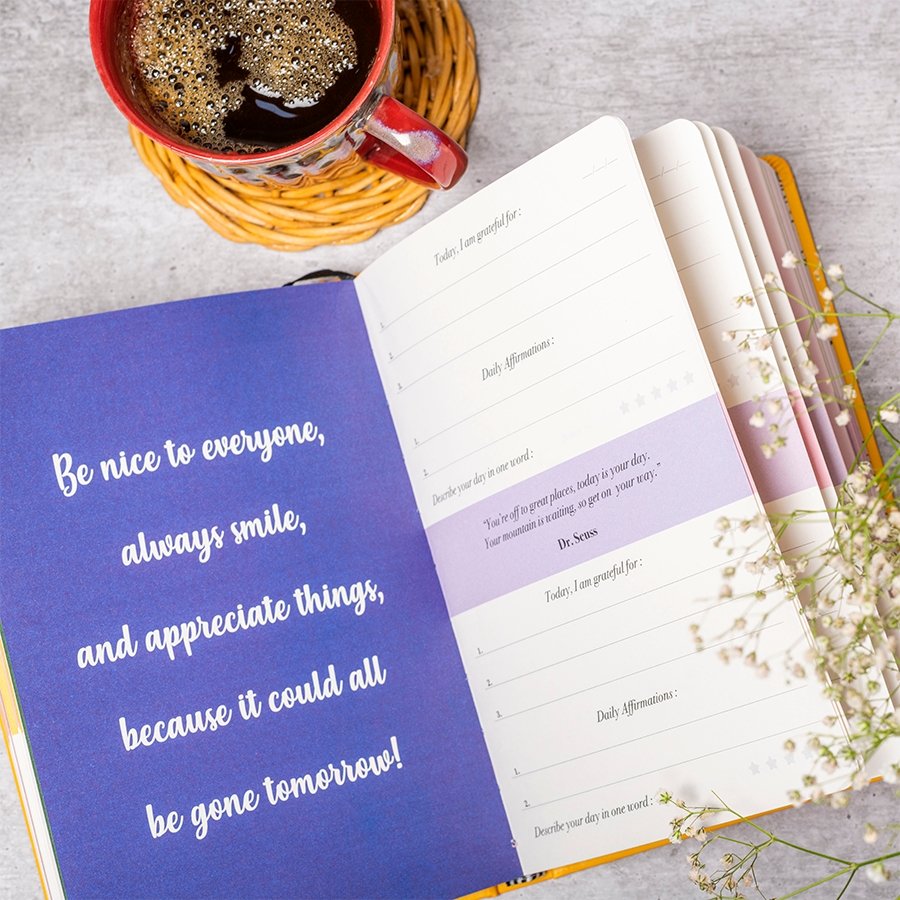 Be nice to everyone,
always smile,
and appreciate things,
because it could all
be gone tomorrow!
__/__/__
Today, I am grateful for :
1.
2.
3.
Daily Affirmations :
1.
2.
Describe your day in one word :
"You're off to great places, today is your day.
Your mountain is waiting, so get on your way."
Dr. Seuss
Today, I am grateful for :
1.
2.
3.
Daily Affirmations :
1.
2.
Describe your day in one word :
__/__/__